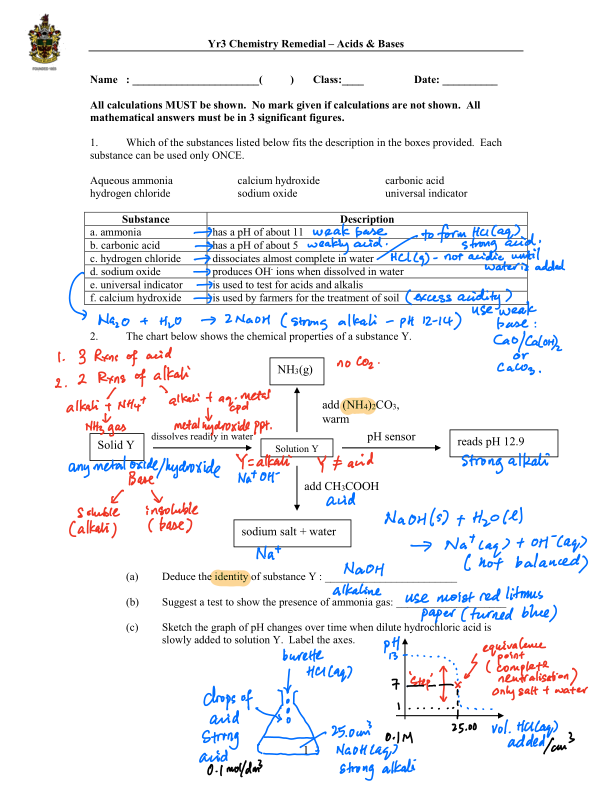 Yr3 Chemistry Remedial – Acids & Bases
Name : ______________________( ) Class:____ Date: __________
All calculations MUST be shown. No mark given if calculations are not shown. All
mathematical answers must be in 3 significant figures.
1. Which of the substances listed below fits the description in the boxes provided. Each
substance can be used only ONCE.
Aqueous ammonia calcium hydroxide carbonic acid
hydrogen chloride sodium oxide universal indicator
Substance Description
a. ammonia → has a pH of about 11 weak base
b. carbonic acid → has a pH of about 5 weakly acid.
c. hydrogen chloride → dissociates almost complete in water
to form HCl(aq)
strong acid.
HCl(g) - not acidic until
water is added
d. sodium oxide → produces OH⁻ ions when dissolved in water
e. universal indicator → is used to test for acids and alkalis
f. calcium hydroxide → is used by farmers for the treatment of soil (excess acidity)
Na₂O + H₂O → 2NaOH (strong alkali - pH 12-14)
use weak
base:
CaO/Ca(OH)₂
or
CaCO₃.
2. The chart below shows the chemical properties of a substance Y.
1. 3 Rxns of acid
2. 2 Rxns of alkali
alkali + NH₄⁺
NH₃ gas
alkali + aq. metal
cpd
metal hydroxide ppt.
NH₃(g)
no CO₂.
add (NH₄)₂CO₃,
warm
Solid Y
dissolves readily in water
Solution Y
pH sensor
reads pH 12.9
strong alkali
any metal oxide/hydroxide
Base
soluble
(alkali)
insoluble
(base)
Y = alkali Y ≠ acid
Na⁺OH⁻
add CH₃COOH
acid
sodium salt + water
Na⁺
NaOH(s) + H₂O(l)
→ Na⁺(aq) + OH⁻(aq)
(not balanced)
(a) Deduce the identity of substance Y : NaOH
alkaline
(b) Suggest a test to show the presence of ammonia gas: use moist red litmus
paper (turned blue)
(c) Sketch the graph of pH changes over time when dilute hydrochloric acid is
slowly added to solution Y. Label the axes.
burette
HCl(aq)
drops of
acid
strong
acid
0.1 mol/dm³
25.0cm³
NaOH(aq)
strong alkali
0.1M
pH
13
7
1
'step'
equivalence
point
(complete
neutralisation)
only salt + water
25.00
vol. HCl(aq)
added/cm³